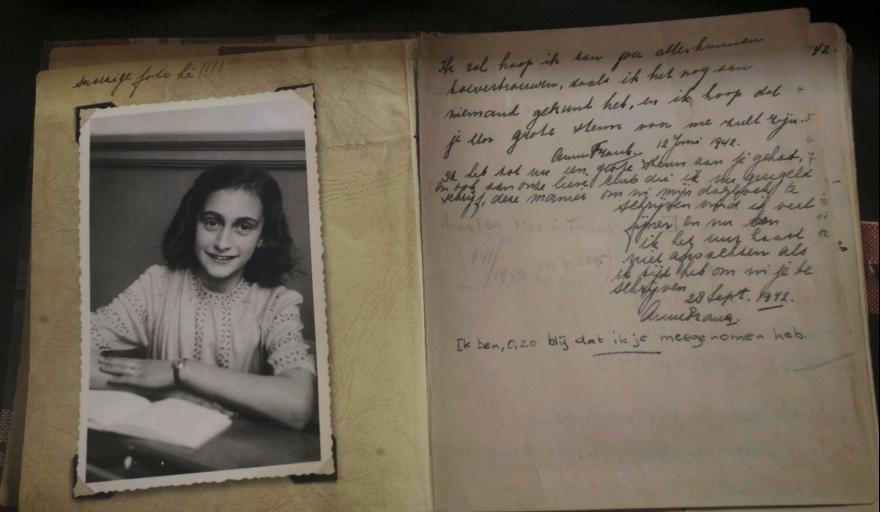 snoezige foto hè!!!!
42.
Ik zal hoop ik aan jou alles kunnen
toevertrouwen, zoals ik het nog aan
niemand gekund heb, en ik hoop dat
je een grote steun van me zult zijn.
Anne Frank. 12 Juni 1942.
Ik heb tot nu een grote steun aan je gehad,
en ook aan onze lieve club die ik nu geregeld
schrijf, deze manier om in mijn dagboek te
schrijven vind ik veel
fijner en nu kan
ik het uur haast
niet afwachten als
ik tijd heb om in je te
schrijven.
28 Sept. 1942.
Anne Frank.
Ik ben, o, zo blij dat ik je meegenomen heb.